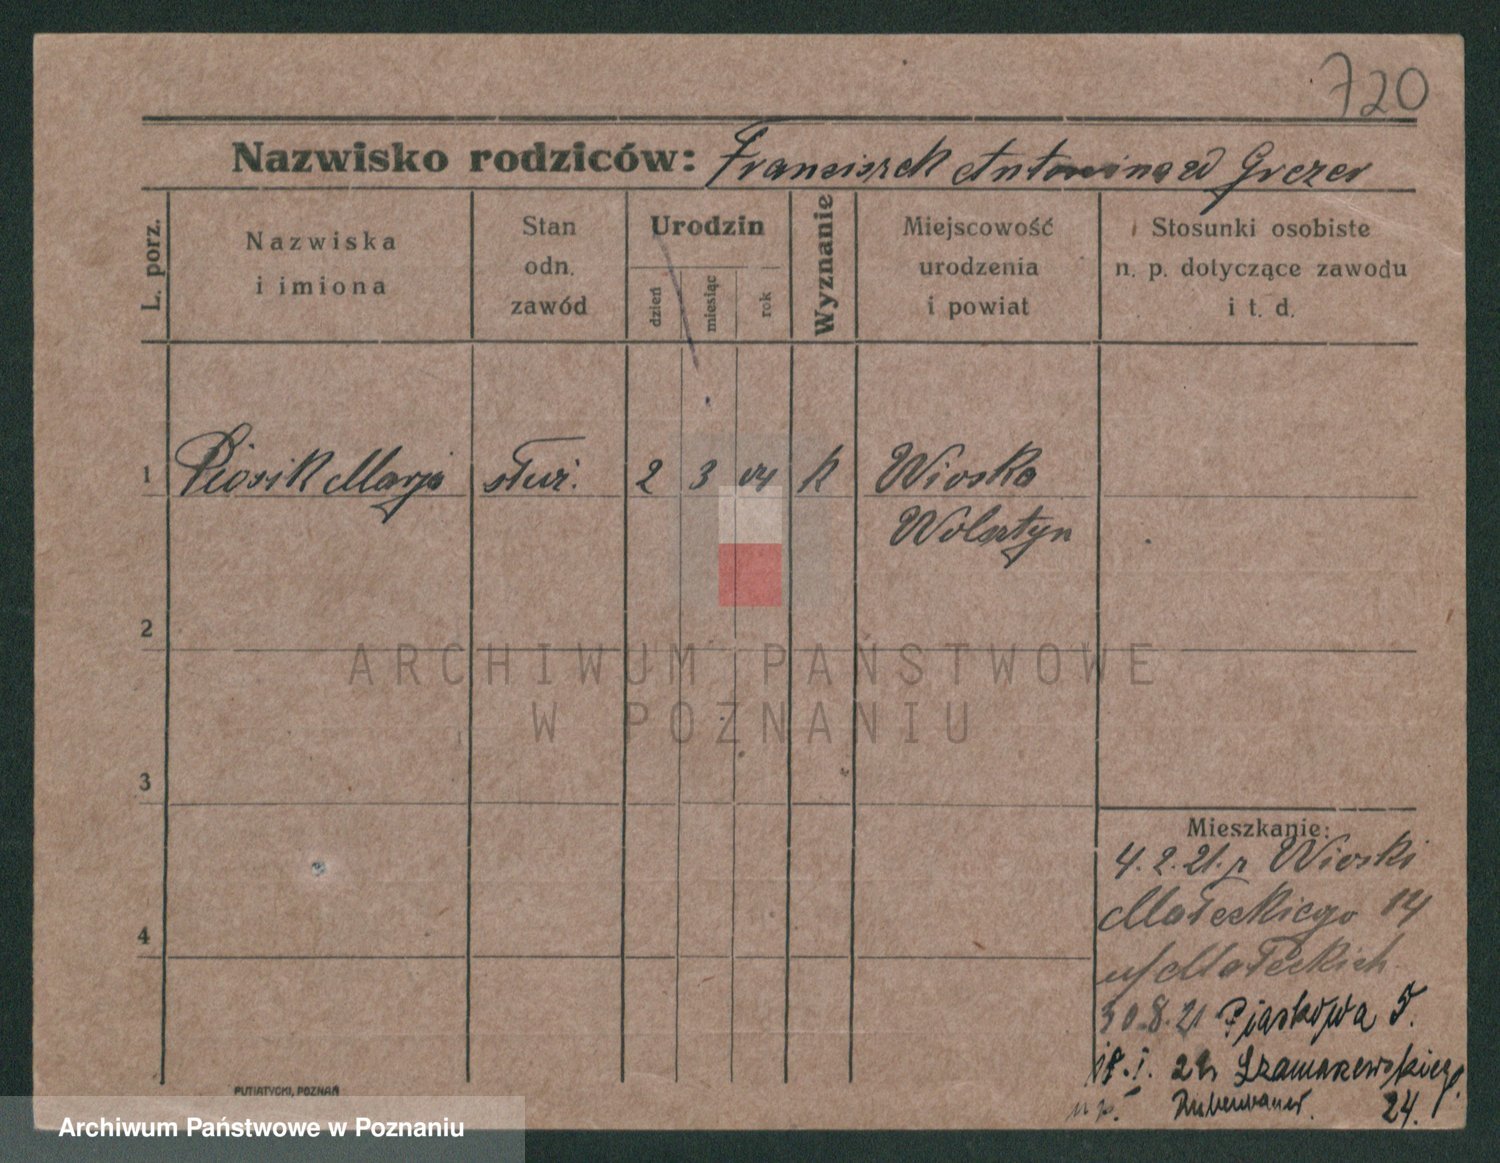 720
Nazwisko rodziców: Franciszek Antonina z d Grezer
L. porz.
Nazwiska
i imiona
Stan
odn.
zawód
Urodzin
dzień
miesiąc
rok
Wyznanie
Miejscowość
urodzenia
i powiat
Stosunki osobiste
n. p. dotyczące zawodu
i t. d.
1 Piosik Marja służ. 2 3 04 k Wioska
Wolsztyn
2
ARCHIWUM PAŃSTWOWE
W POZNANIU
3
4
Mieszkanie:
4.2.21. z Wioski
Małeckiego 14
u/Małeckich
30.8.21 Piaskowa 5.
18.I. 22 Szamarzewskiego
24.
PUTIATYCKI, POZNAŃ
Archiwum Państwowe w Poznaniu